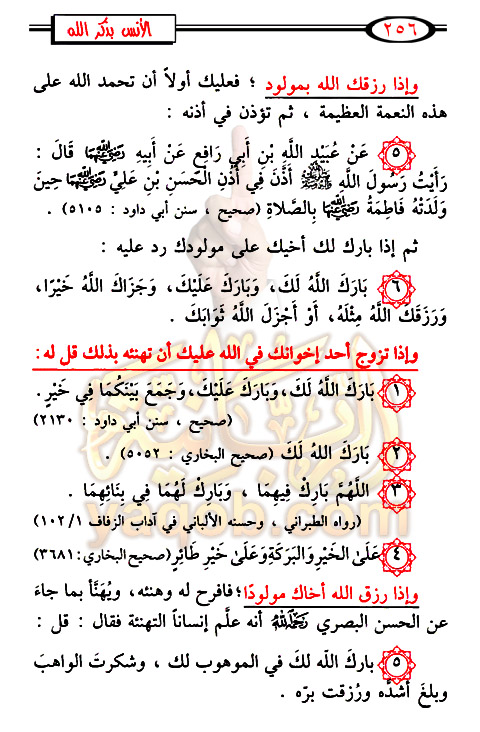 ٢٥٦
الأنس بذكر الله
وإذا رزقك الله بمولود ؛ فعليك أولاً أن تحمد الله على
هذه النعمة العظيمة ، ثم تؤذن في أذنه :
٥ عَنْ عُبَيْدِ اللَّهِ بْنِ أَبِي رَافِعٍ عَنْ أَبِيهِ رَضِيَ اللَّهُ عَنْهُمَا قَالَ :
رَأَيْتُ رَسُولَ اللَّهِ ﷺ أَذَّنَ فِي أُذُنِ الْحَسَنِ بْنِ عَلِيٍّ رَضِيَ اللَّهُ عَنْهُمَا حِينَ
وَلَدَتْهُ فَاطِمَةُ بِالصَّلاةِ (صحيح ، سنن أبي داود : ٥١٠٥) .
ثم إذا بارك لك أخيك على مولودك رد عليه :
٦ بَارَكَ اللَّهُ لَكَ، وَبَارَكَ عَلَيْكَ، وَجَزَاكَ اللَّهُ خَيْرًا،
وَرَزَقَكَ اللَّهُ مِثْلَهُ، أَوْ أَجْزَلَ اللَّهُ ثَوَابَكَ .
وإذا تزوج أحد إخوانك في الله عليك أن تهنئه بذلك قل له :
١ بَارَكَ اللَّهُ لَكَ، وَبَارَكَ عَلَيْكَ، وَجَمَعَ بَيْنَكُمَا فِي خَيْرٍ .
(صحيح ، سنن أبي داود : ٢١٣٠)
٢ بَارَكَ اللهُ لَكَ (صحيح البخاري : ٥٠٥٢) .
٣ اللَّهُمَّ بَارِكْ فِيهِمَا ، وَبَارِكْ لَهُمَا فِي بِنَائِهِمَا .
(رواه الطبراني ، وحسنه الألباني في آداب الزفاف ١/١٠٢)
٤ عَلَىٰ الخَيْرِ وَالبَرَكَةِ وَعَلَىٰ خَيْرِ طَائِرٍ (صحيح البخاري: ٣٦٨١)
وإذا رزق الله أخاك مولودًا ؛ فافرح له وهنئه، ويُهَنَّأ بما جاءَ
عن الحسن البصري رَحِمَهُ اللَّهُ أنه علَّم إنساناً التهنئة فقال : قل :
٥ باركَ اللّه لكَ في الموهوب لك ، وشكرتَ الواهبَ
وبلغَ أشدَّه ورُزقت برّه .
yaqob.com